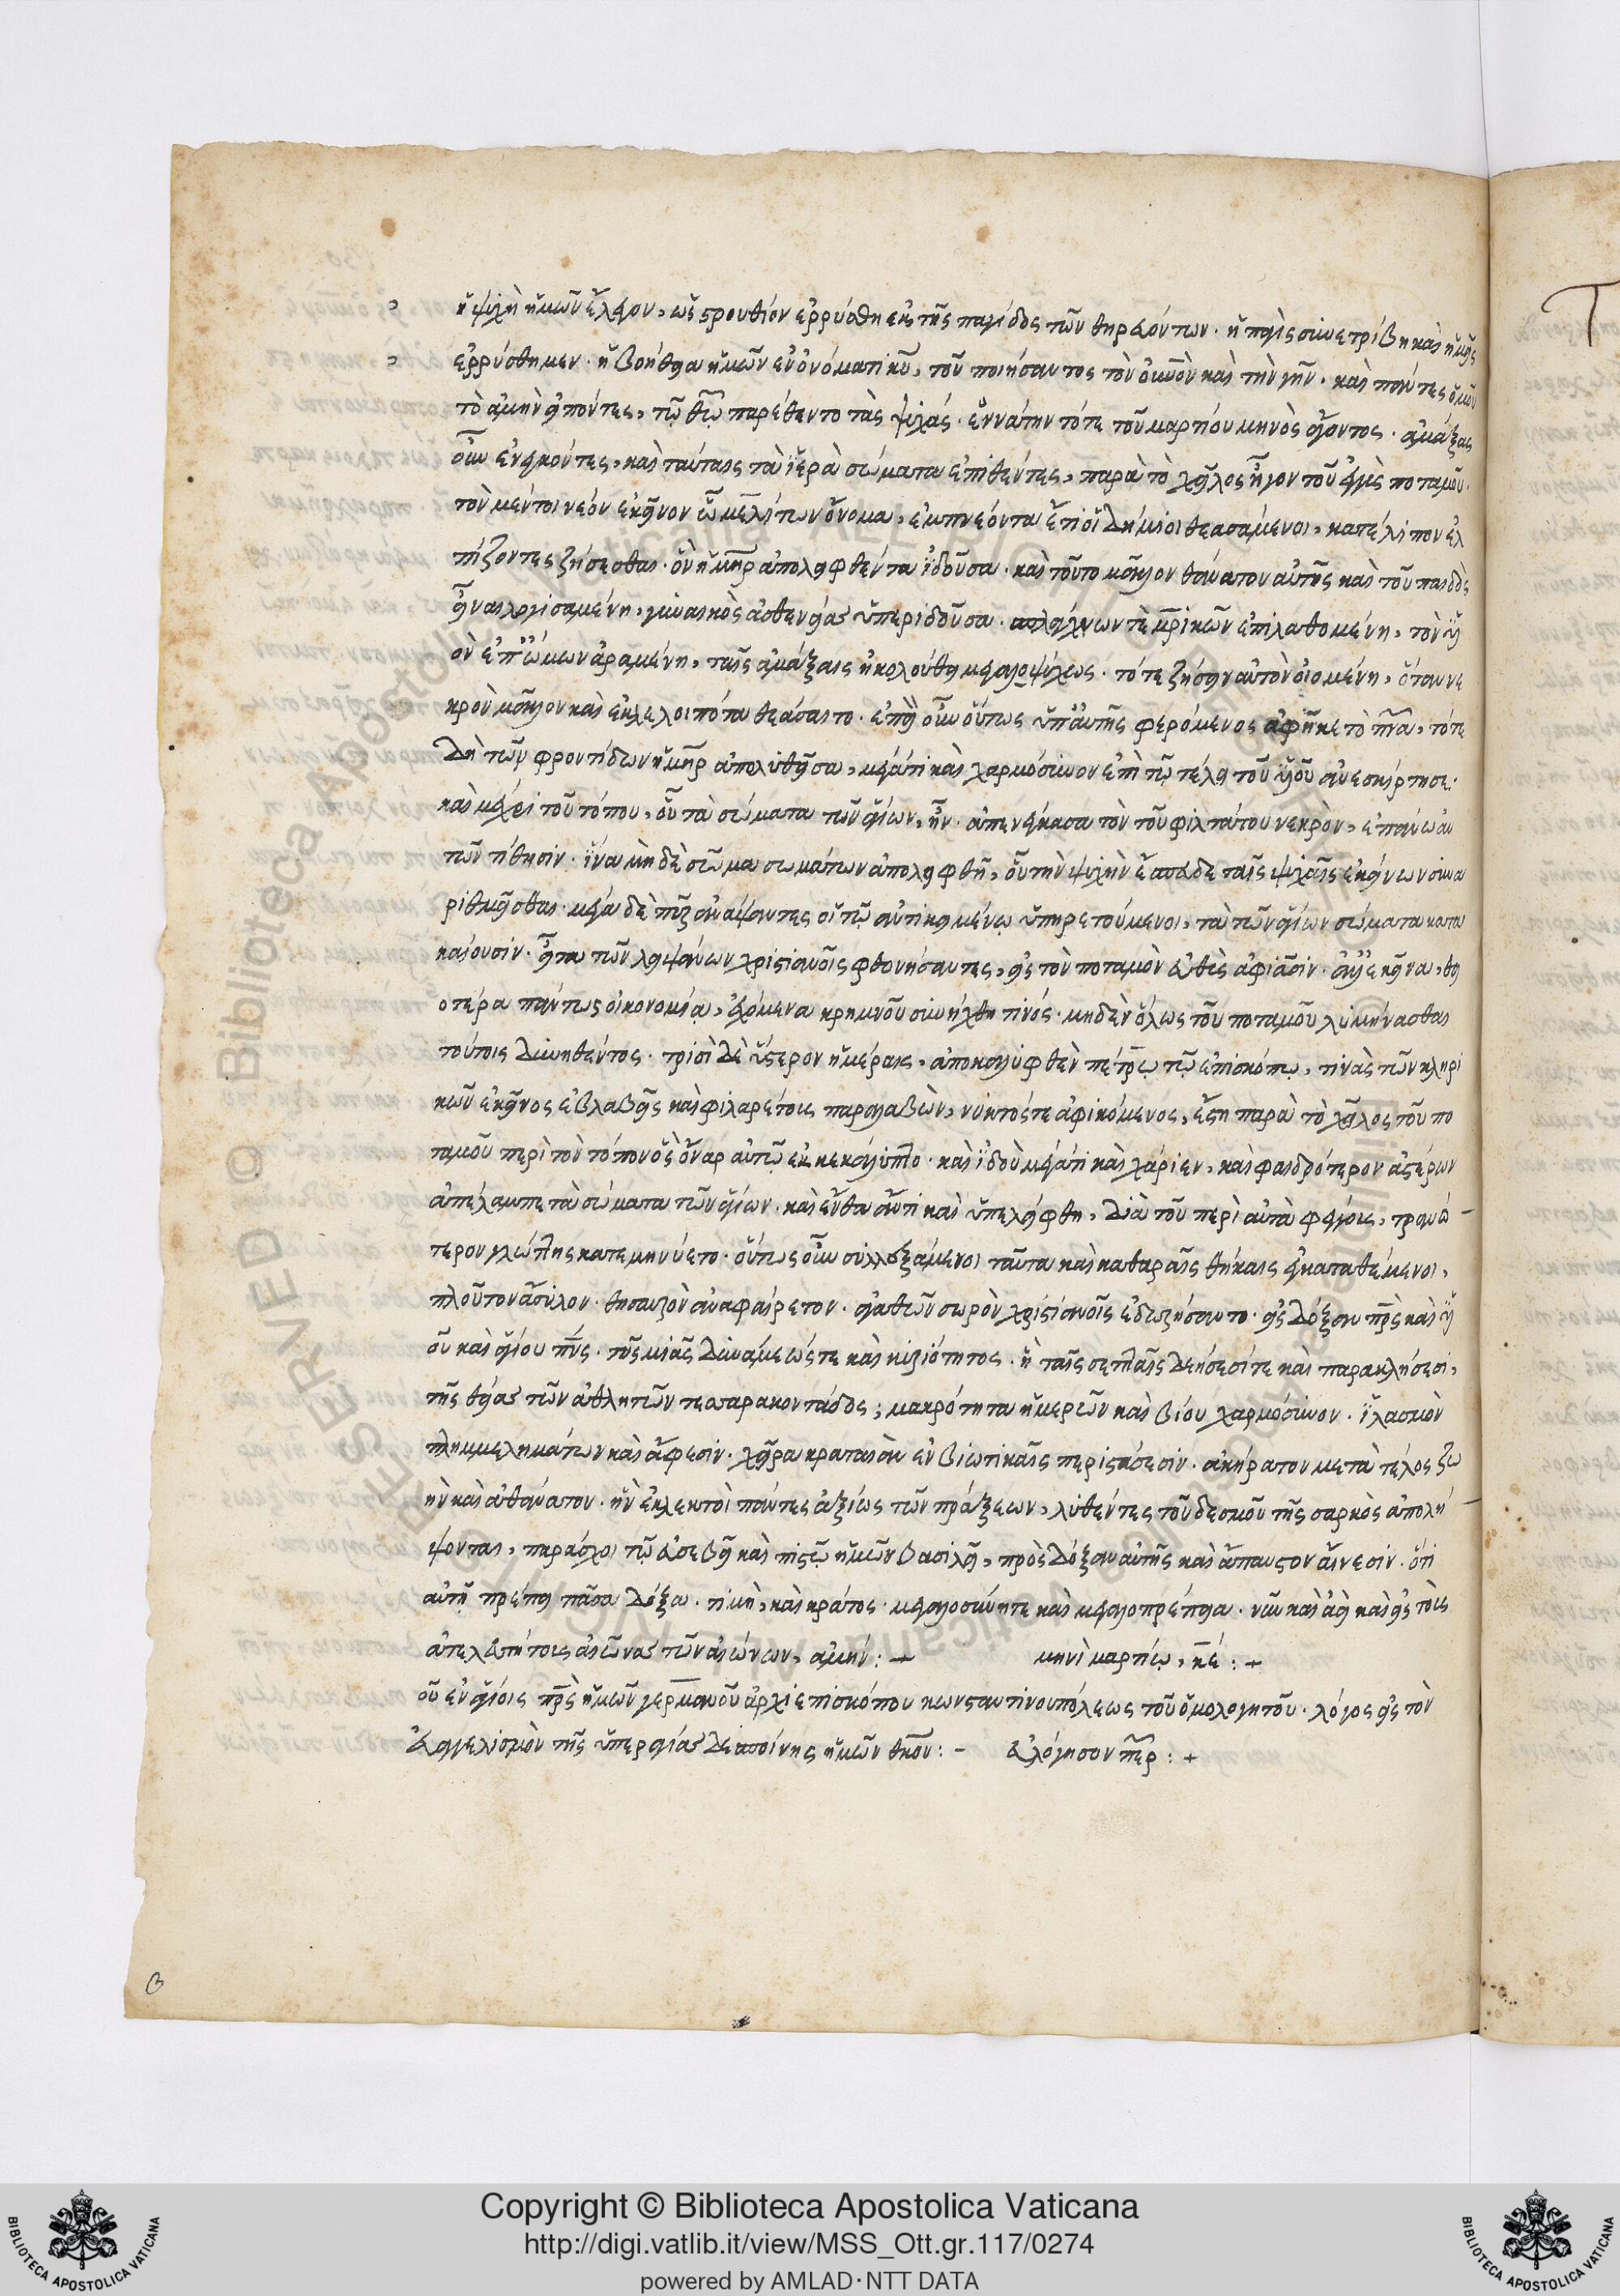 ἡ ψυχὴ ἡμῶν ἔλεγον, ὡς στρουθίον ἐρρύσθη ἐκ τῆς παγίδος τῶν θηρευόντων. ἡ παγὶς συνετρίβη καὶ ἡμεῖς
ἐρρύσθημεν. ἡ βοήθεια ἡμῶν ἐν ὀνόματι κυ, τοῦ ποιήσαντος τὸν οὐνον καὶ τὴν γῆν. καὶ πάντες ὁμοῦ
τὸ ἀμὴν εἰπόντες, τῷ θω παρέθεντο τὰς ψυχάς. ἐννάτην τότε τοῦ μαρτίου μηνὸς ἄγοντος. ἁμάξας
οὖν ἐνεγκόντες, καὶ ταύταις τὰ ἱερὰ σώματα ἐπιθέντες, παρὰ τὸ χεῖλος ἦγον τοῦ ποταμοῦ.
τὸν μέντοι νέον ἐκεῖνον ὧ μελίτων ὄνομα, ἐμπνέοντα ἔτι οἱ δήμιοι θεασάμενοι, κατέλιπον ἐλ
πίζοντες ζήσεσθαι. ὃν ἡ μηρ ἀπολειφθέντα ἰδοῦσα. καὶ τοῦτο μᾶλλον θάνατον αὐτῆς καὶ τοῦ παιδὸς
εἶναι λογισαμένη, γυναικὸς ἀσθενείας ὑπεριδοῦσα. σπλάγχνων τὲ μρικῶν ἐπιλαθομένη, τὸν υἱ
ὸν ἐπ' ὤμων ἀραμένη, ταῖς ἁμάξαις ἠκολούθει μεγαλοψύχως. τότε ζήσειν αὐτὸν οἰομένη, ὅταν νε
κρὸν μᾶλλον καὶ ἐκλελοιπότα θεάσαιτο. ἐπεὶ οὖν οὕτως ὑπ' αὐτῆς φερόμενος ἀφῆκε τὸ πνα, τότε
δὴ τῶν φροντίδων ἡ μηρ ἀπολυθεῖσα, μέγάτι καὶ χαρμόσυνον ἐπὶ τῷ τέλει τοῦ υἱοῦ ἀνεσκίρτησε.
καὶ μέχρι τοῦ τόπου, οὗ τὰ σώματα τῶν ἁγίων, ἦν. ἀπενέγκασα τὸν τοῦ φιλτάτου νεκρὸν, ἐπάνω αυ
τῶν τίθησιν. ἵνα μὴ δὲ σῶμα σωμάτων ἀπολειφθῇ, οὗ τὴν ψυχὴν ἔσπευδε ταῖς ψυχαῖς ἐκείνων συνα
ριθμεῖσθαι. μέγα δὲ πῦρ ἀνάψαντες οἱ τῷ ἀντικειμένῳ ὑπηρετούμενοι, τὰ τῶν ἁγίων σώματα κατα
καίουσιν. εἶτα τῶν λειψάνων χριστιανοῖς φθονήσαντες, εἰς τὸν ποταμὸν εὐθὺς ἀφιᾶσιν. ἀλλ' ἐκεῖνα, θει
οτέρα πάντως οἰκονομίᾳ, ἐχόμενα κρημνοῦ συνήχθη τινός. μηδὲν ὅλως τοῦ ποταμοῦ λυμήνασθαι
τούτοις δυνηθέντος. τρισὶ δὲ ὕστερον ἡμέραις, ἀποκαλυφθὲν πέτρῳ τῷ ἐπισκόπῳ, τινὰς τῶν κληρι
κῶν ἐκεῖνος εὐλαβεῖς καὶ φιλαρέτους παραλαβὼν, νυκτός τε ἀφικόμενος, ἔστη παρὰ τὸ χεῖλος τοῦ πο
ταμοῦ περὶ τὸν τόπον ὃς ὄναρ αὐτῷ ἐκκεκάλυπτο. καὶ ἰδοὺ μέγάτι καὶ χάριεν, καὶ φαιδρότερον ἀστέρων
ἀπέλαμπε τὰ σώματα τῶν ἁγίων. καὶ ἔνθα ἄντι καὶ ὑπελείφθη, διὰ τοῦ περὶ αὐτὰ φέγγους, τρανώ
τερον γλώττης κατεμηνύετο. οὕτως οὖν συλλεξάμενοι ταῦτα καὶ καθαραῖς θήκαις ἐγκαταθέμενοι,
πλοῦτον ἄσυλον. θησαυρὸν ἀναφαίρετον. ἀγαθῶν σωρὸν χριστιανοῖς ἐδωρήσαντο. εἰς δόξαν πρς καὶ υἱ
οῦ καὶ ἁγίου πνς. τῆς μιᾶς δυνάμεώς τε καὶ κυριότητος. ἣ ταῖς σεπταῖς δεήσεσί τε καὶ παρακλήσεσι,
τῆς θείας τῶν ἀθλητῶν τεσσαρακοντάδος, μακρότητα ἡμερῶν καὶ βίου χαρμόσυνον. ἱλασμὸν
πλημμελημάτων καὶ ἄφεσιν. χεῖρα κραταιὰν ἐν βιωτικαῖς περιστάσεσιν. ἀκήρατον μετὰ τέλος ζω
ὴν καὶ ἀθάνατον. ἣν ἐκλεκτοὶ πάντες ἀξίως τῶν πράξεων, λυθέντες τοῦ δεσμοῦ τῆς σαρκὸς ἀπολή
ψονται, παράσχοι τῷ εὐσεβεῖ καὶ πιστῷ ἡμῶν βασιλεῖ, πρὸς δόξαν αὐτῆς καὶ ἄπαυστον αἴνεσιν. ὅτι
αὐτῇ πρέπει πᾶσα δόξα. τιμὴ, καὶ κράτος. μεγαλοσύνη τε καὶ μεγαλοπρέπεια. νῦν καὶ ἀεὶ καὶ εἰς τοὺς
ἀτελευτήτους αἰῶνας τῶν αἰώνων, ἀμήν: + μηνὶ μαρτίῳ, κε: +
οῦ ἐν ἁγίοις πρς ἡμῶν γερμανοῦ ἀρχιεπισκόπου κωνσταντινουπόλεως τοῦ ὁμολογητοῦ. λόγος εἰς τὸν
εὐαγγελισμὸν τῆς ὑπεραγίας δεσποίνης ἡμῶν θκου: - εὐλόγησον περ: +
Copyright © Biblioteca Apostolica Vaticana
http://digi.vatlib.it/view/MSS_Ott.gr.117/0274
powered by AMLAD·NTT DATA